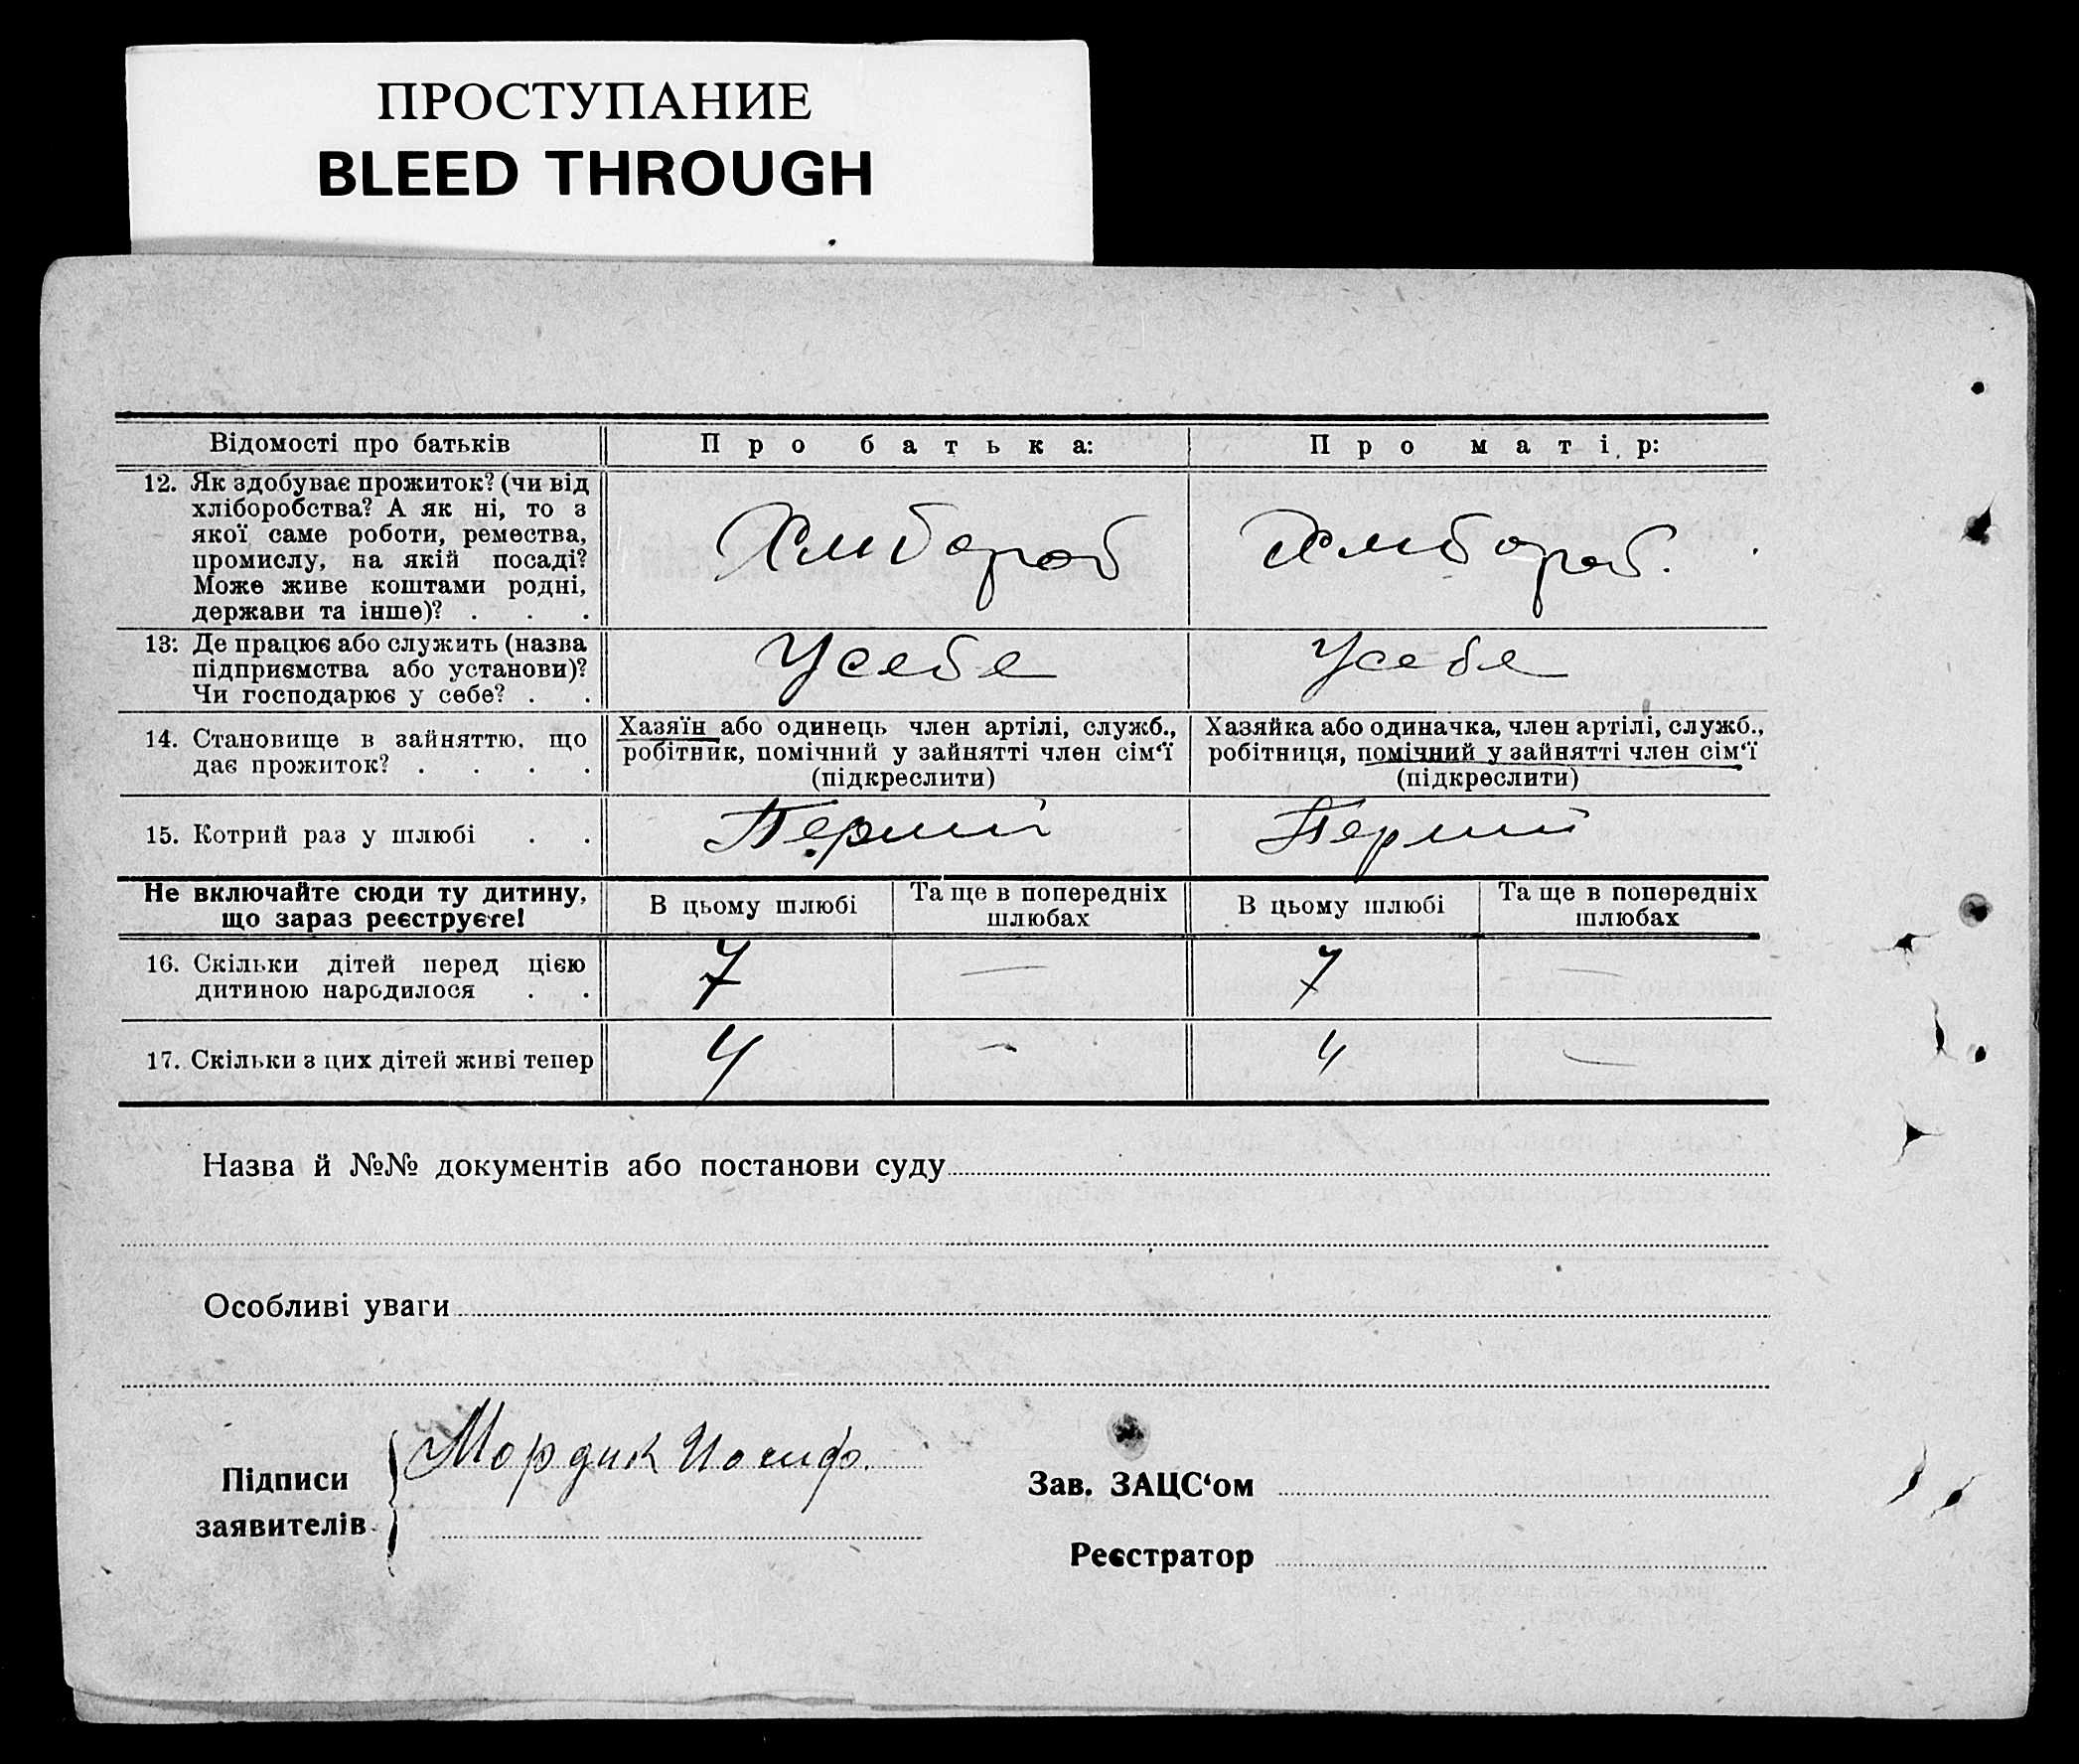 ПРОСТУПАНИЕ
BLEED THROUGH
Відомості про батьків
Про батька:
Про матір:
12. Як здобуває прожиток? (чи від
хліборобства? А як ні, то з
якої саме роботи, ремества,
промислу, на якій посаді?
Може живе коштами родні,
держави та інше)? . . .
Хлибороб
Хлибороб.
13: Де працює або служить (назва
підприємства або установи)?
Чи господарює у себе? . .
Усебе
Усебе
14. Становище в зайняттю, що
дає прожиток? . . . .
Хазяїн або одинець член артілі, служб.,
робітник, помічний у зайнятті член сім‘ї
(підкреслити)
Хазяйка або одиначка, член артілі, служб.,
робітниця, помічний у зайнятті член сім‘ї
(підкреслити)
15. Котрий раз у шлюбі . .
Перший
Перший
Не включайте сюди ту дитину,
що зараз реєструєте!
В цьому шлюбі
Та ще в попередніх
шлюбах
В цьому шлюбі
Та ще в попередніх
шлюбах
16. Скільки дітей перед цією
дитиною народилося . .
7
—
7
—
17. Скільки з цих дітей живі тепер
4
—
4
—
Назва й №№ документів або постанови суду
Особливі уваги
Підписи
заявителів
Мордик Иосиф.
Зав. ЗАЦС‘ом
Реєстратор